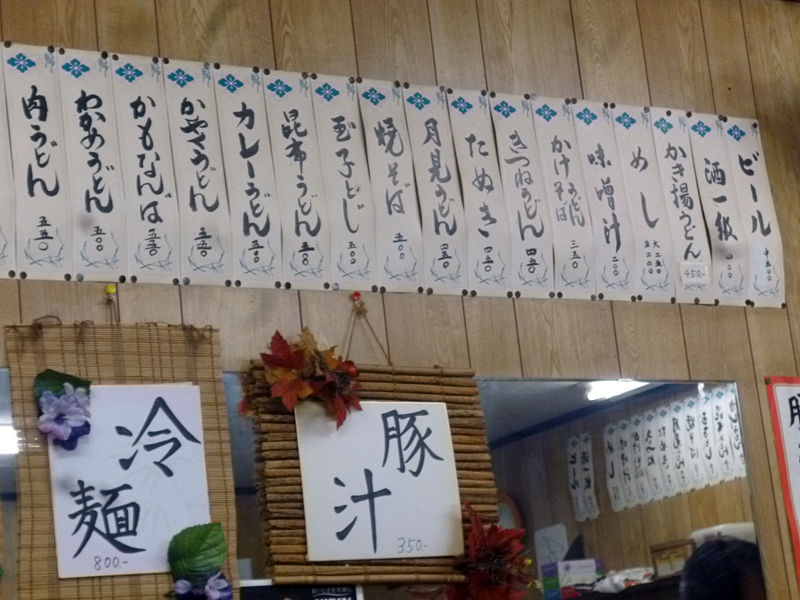 ビール 中五〇〇
酒一級
かき揚うどん 450.-
めし 大二五〇 小二〇〇
味噌汁 二〇〇
かけうどんそば 三五〇
きつねうどん 四五〇
たぬき 四五〇
月見うどん 四五〇
焼そば 五〇〇
玉子とじ 五〇〇
昆布うどん 五五〇
カレーうどん 五五〇
かやくうどん 五五〇
かもなんば 五五〇
わかめうどん 五〇〇
肉うどん 五五〇
豚汁
350.-
冷麺
800.-